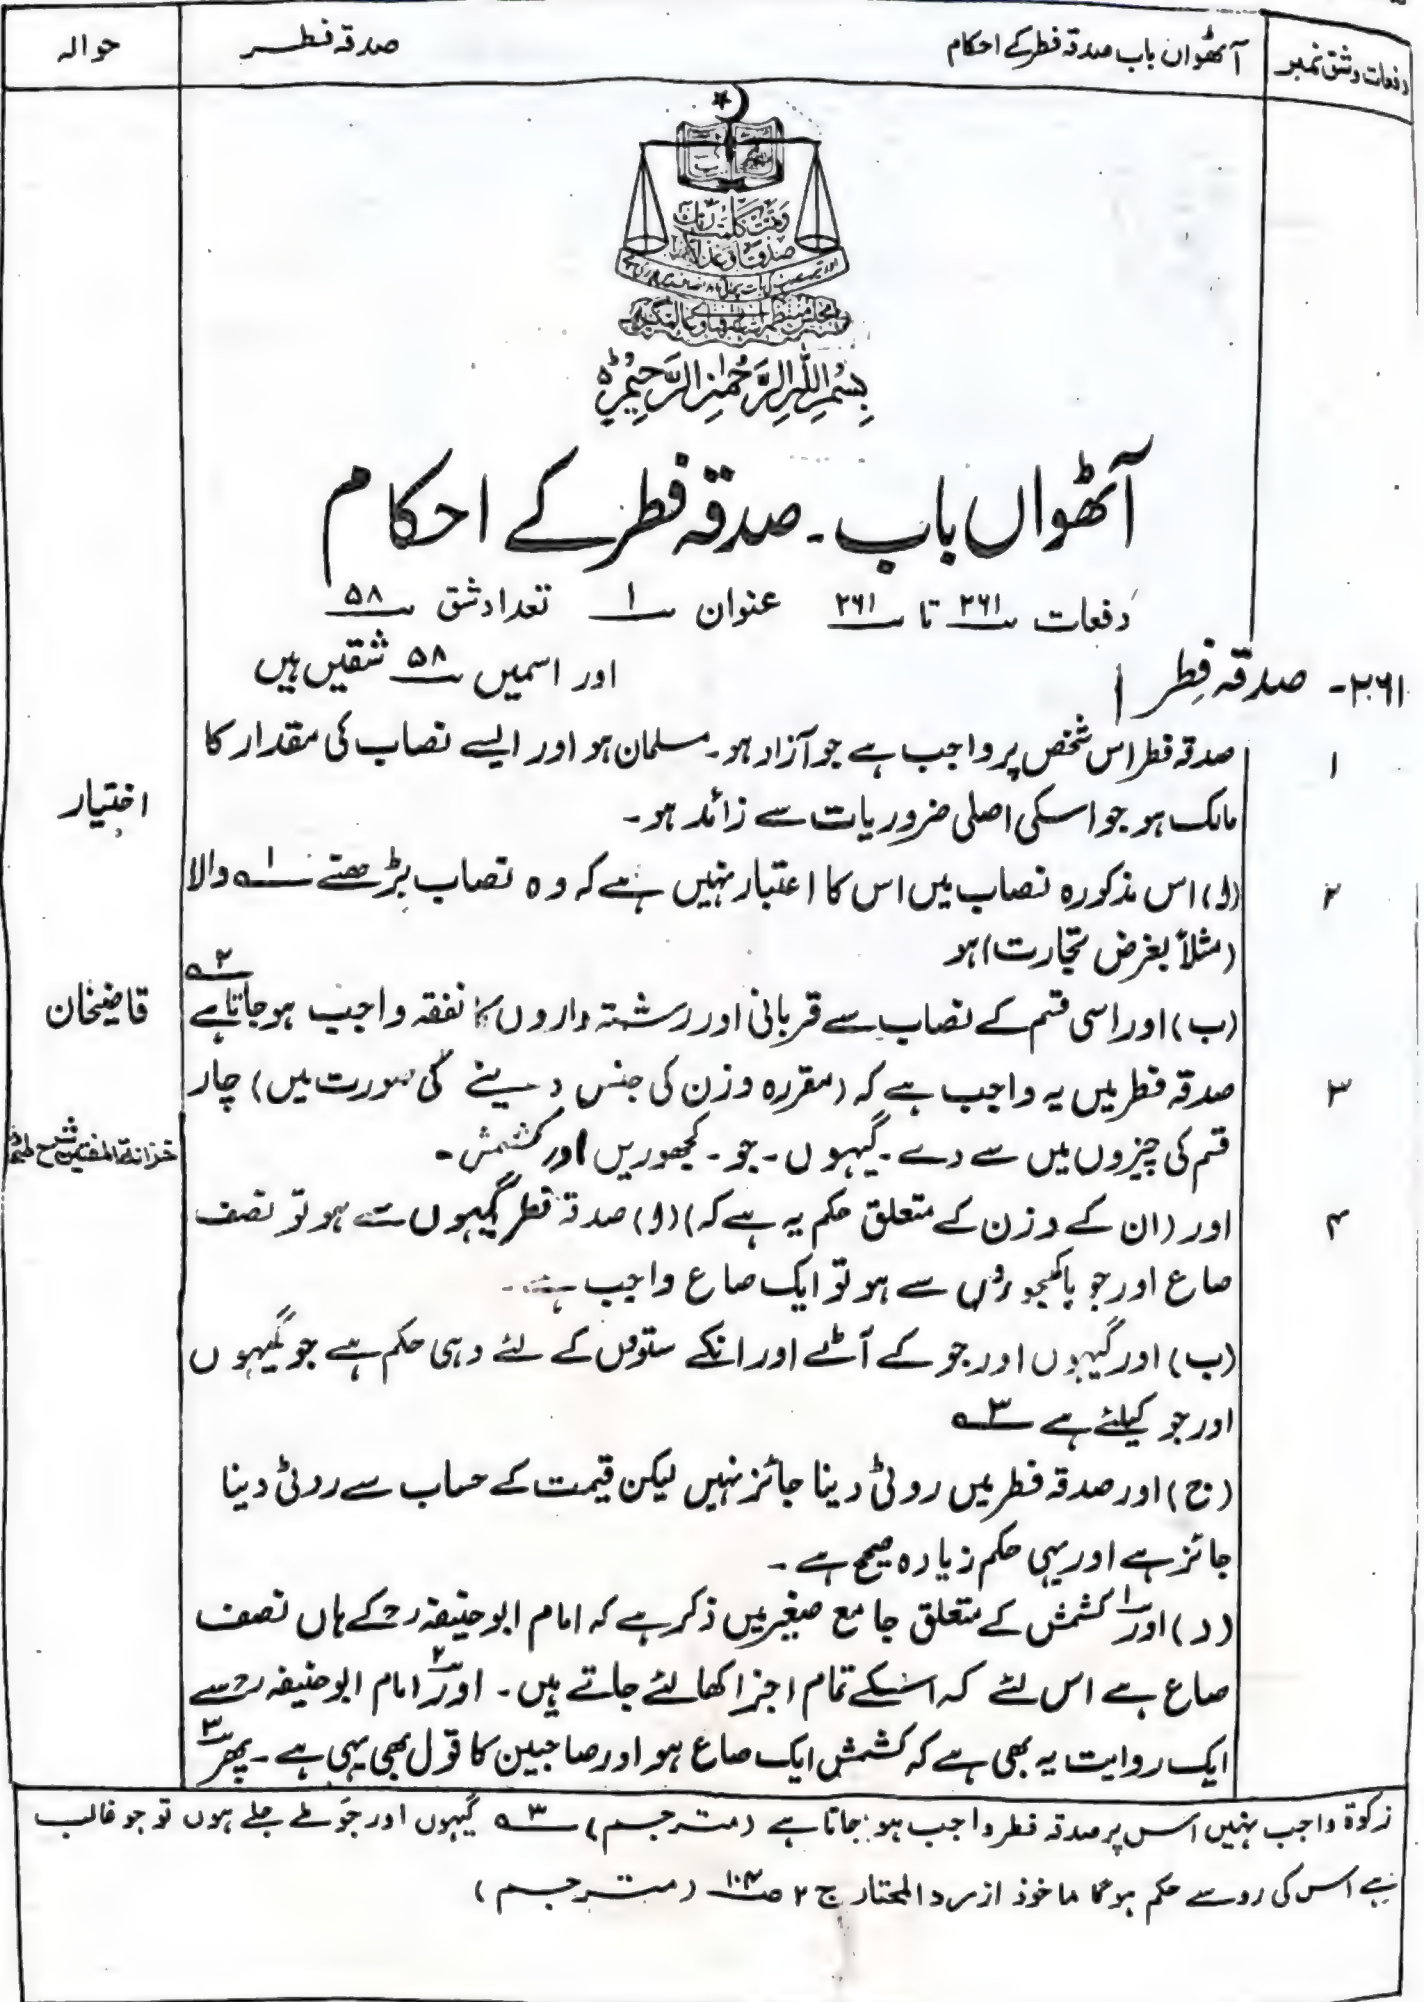 دفعات وشق نمبر
آٹھواں باب صدقہ فطر کے احکام
صدقہ فطر
حوالہ
وَتَمَّتْ كَلِمَتُ رَبِّكَ
صِدْقًا وَعَدْلًا
بِسْمِ اللّٰهِ الرَّحْمٰنِ الرَّحِيْمِ
آٹھواں باب ۔ صدقہ فطر کے احکام
دفعات ۲۶۱ تا ۲۶۱ عنوان ۱ تعداد شق ۵۸
۲۶۱- صدقہ فِطر اور اسمیں ۵۸ شقیں ہیں
۱ صدقہ فطر اس شخص پر واجب ہے جو آزاد ہو۔ مسلمان ہو اور ایسے نصاب کی مقدار کا
مالک ہو جو اسکی اصلی ضروریات سے زائد ہو۔ اختیار
۲ (ا) اس مذکورہ نصاب میں اس کا اعتبار نہیں ہے کہ وہ نصاب بڑھنے ۱ والا
(مثلاً بغرض تجارت) ہو
(ب) اور اسی قسم کے نصاب سے قربانی اور رشتہ داروں کا نفقہ واجب ہوجاتا ہے ۲ قاضیخان
۳ صدقہ فطر میں یہ واجب ہے کہ (مقررہ وزن کی جنس دینے کی صورت میں) چار
قسم کی چیزوں میں سے دے ۔ گیہوں ۔ جو ۔ کھجوریں اور کشمش ۔ خزانۃ المفتین شرح
۴ اور (ان کے وزن کے متعلق حکم یہ ہے کہ) (ا) صدقہ فطر گیہوں سے ہو تو نصف
صاع اور جو یا کھجوروں سے ہو تو ایک صاع واجب ہے۔
(ب) اور گیہوں اور جو کے آٹے اور انکے ستوں کے لئے وہی حکم ہے جو گیہوں
اور جو کیلئے ہے ۳
(ج) اور صدقہ فطر میں روٹی دینا جائز نہیں لیکن قیمت کے حساب سے روٹی دینا
جائز ہے اور یہی حکم زیادہ صحیح ہے ۔
(د) اور۱ کشمش کے متعلق جامع صغیر میں ذکر ہے کہ امام ابو حنیفہ رح کے ہاں نصف
صاع ہے اس لئے کہ اسکے تمام اجزا کھا لئے جاتے ہیں ۔ اور۲ امام ابو حنیفہ رح سے
ایک روایت یہ بھی ہے کہ کشمش ایک صاع ہو اور صاحبین کا قول بھی یہی ہے ۔ پھر۳
زکوٰۃ واجب نہیں اس پر صدقہ فطر واجب ہو جاتا ہے (مترجم) ۳ گیہوں اور جَو ملے جلے ہوں تو جو غالب
ہے اس کی رو سے حکم ہوگا ماخوذ از رد المحتار ج ۲ ص ۱۰۴ (مترجم)